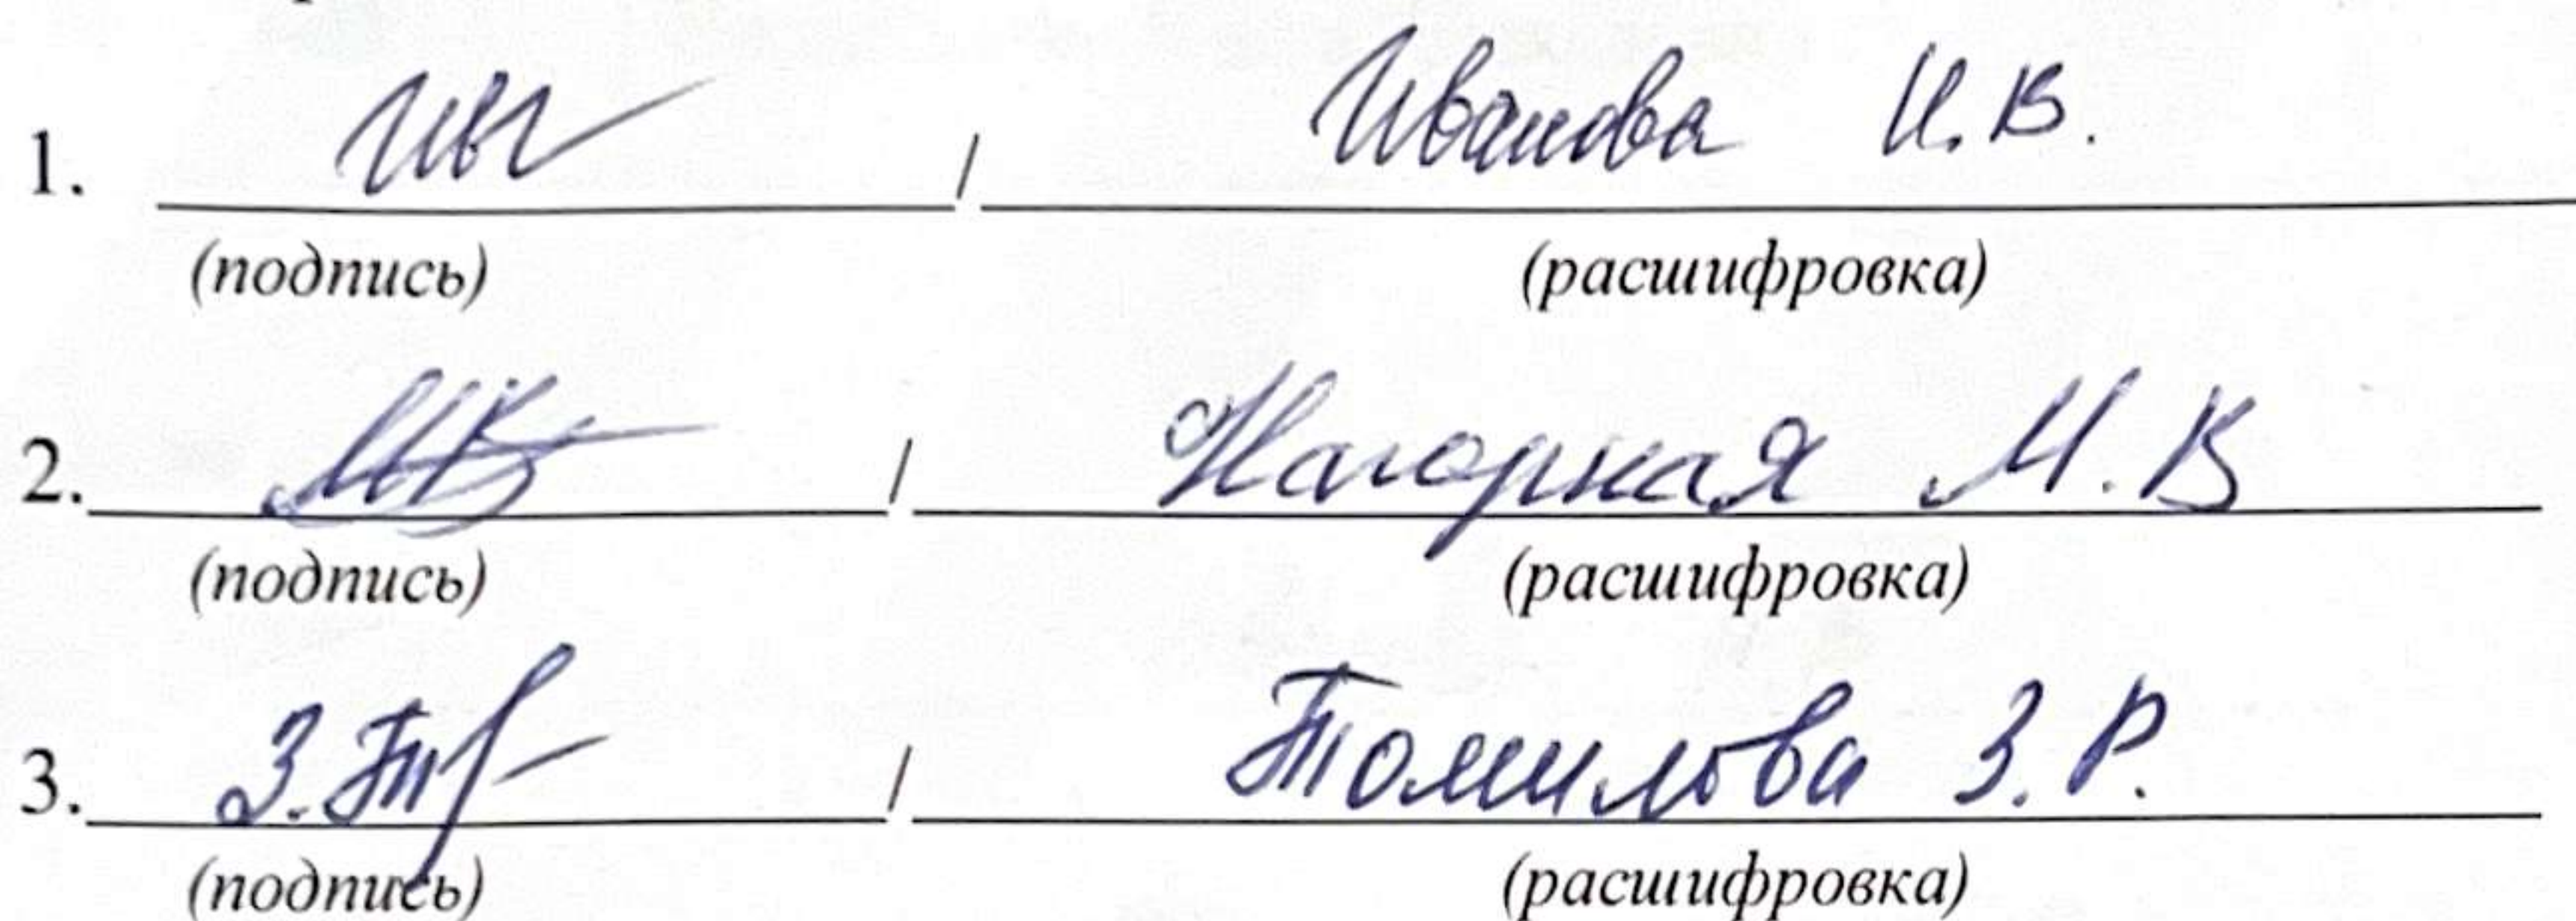 1. / Иванова И. В.
(подпись) (расшифровка)
2. / Нагорная М. В
(подпись) (расшифровка)
3. / Томилова З. Р.
(подпись) (расшифровка)